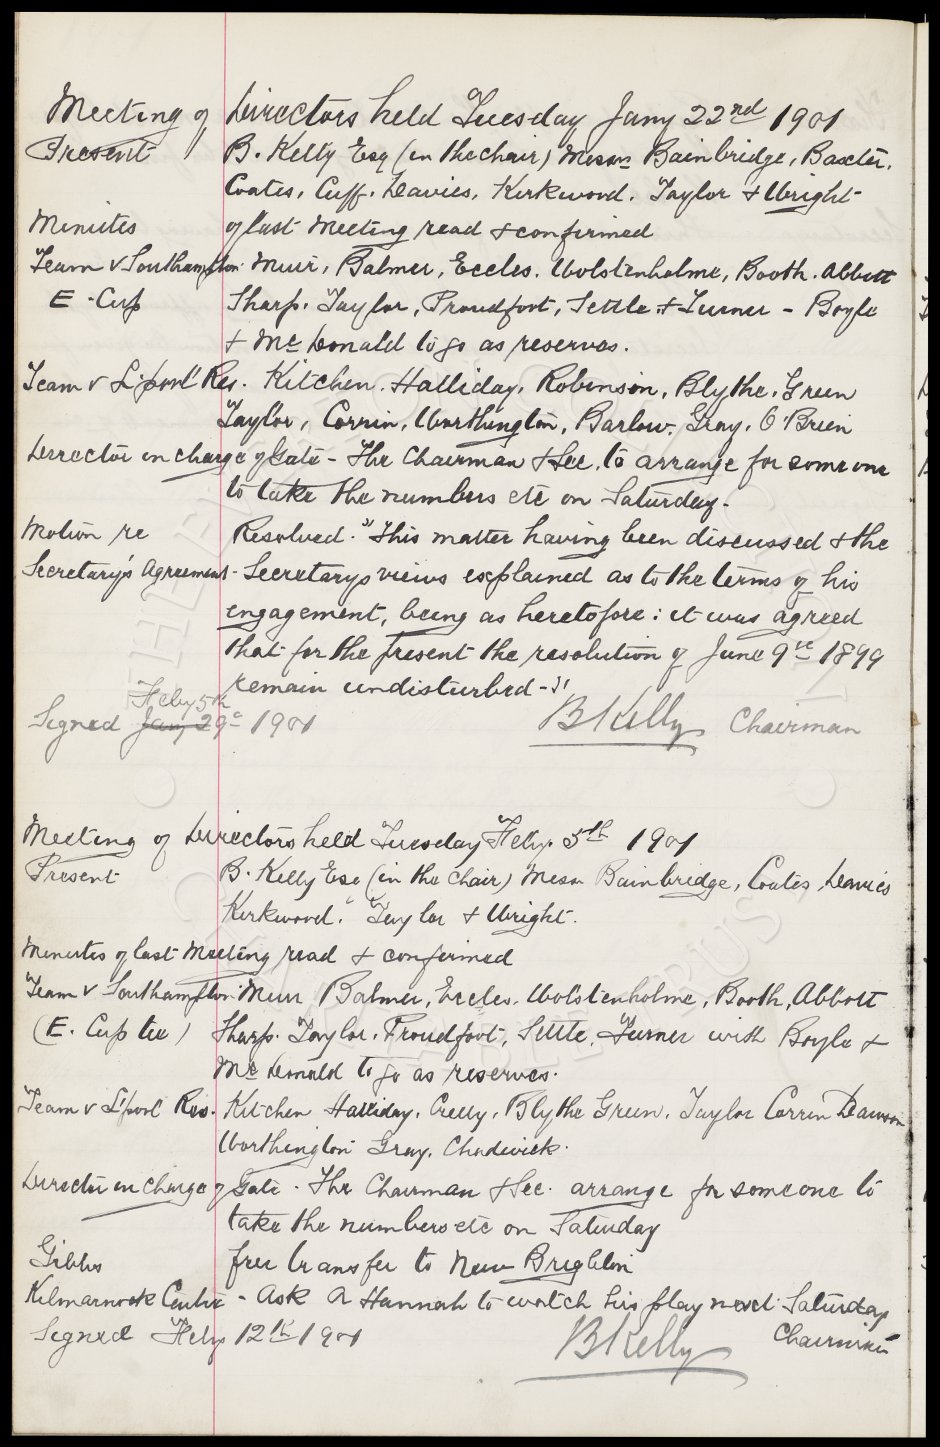 Meeting of Directors held Tuesday Jany 22nd 1901
Present B. Kelly Esq (in the chair) Messrs Bainbridge, Baxter,
Coates, Cuff, Davies, Kirkwood, Taylor & Wright
Minutes of last Meeting read & confirmed
Team v Southampton Muir, Balmer, Eccles, Wolstenholme, Booth, Abbott
E. Cup Sharp, Taylor, Proudfoot, Settle & Turner - Boyle
& Mc Donald to go as reserves.
Team v L'pool Res. Kitchen, Halliday, Robinson, Blythe, Green
Taylor, Corrin, Worthington, Barlow, Gray, O'Brien
Director in charge of Gate - The Chairman & Sec. to arrange for someone
to take the numbers etc on Saturday.
Motion re Resolved. "This matter having been discussed & the
Secretary's Agreement - Secretarys views explained as to the terms of his
engagement, being as heretofore: it was agreed
that for the present the resolution of June 9th 1899
remain undisturbed - "
Feby 5th
Signed Jany 29th 1901 B Kelly Chairman
Meeting of Directors held Tuesday Feby. 5th 1901
Present B. Kelly Esq (in the chair) Messrs Bainbridge, Coates, Davies
Kirkwood, Taylor & Wright.
Minutes of last Meeting read & confirmed
Team v Southampton. Muir Balmer, Eccles, Wolstenholme, Booth, Abbott
(E. Cup tie) Sharp, Taylor, Proudfoot, Settle, Turner with Boyle &
Mc Donald to go as reserves.
Team v L'pool Res. Kitchen Halliday, Crelly, Blythe Green, Taylor Corrin Dawson
Worthington Gray, Chadwick.
Director in charge of Gate. The Chairman & Sec. arrange for someone to
take the numbers etc on Saturday
Gibbs free transfer to New Brighton
Kilmarnock Centre - Ask A Hannah to watch his play next Saturday
Signed Feby 12th 1901 B Kelly Chairman